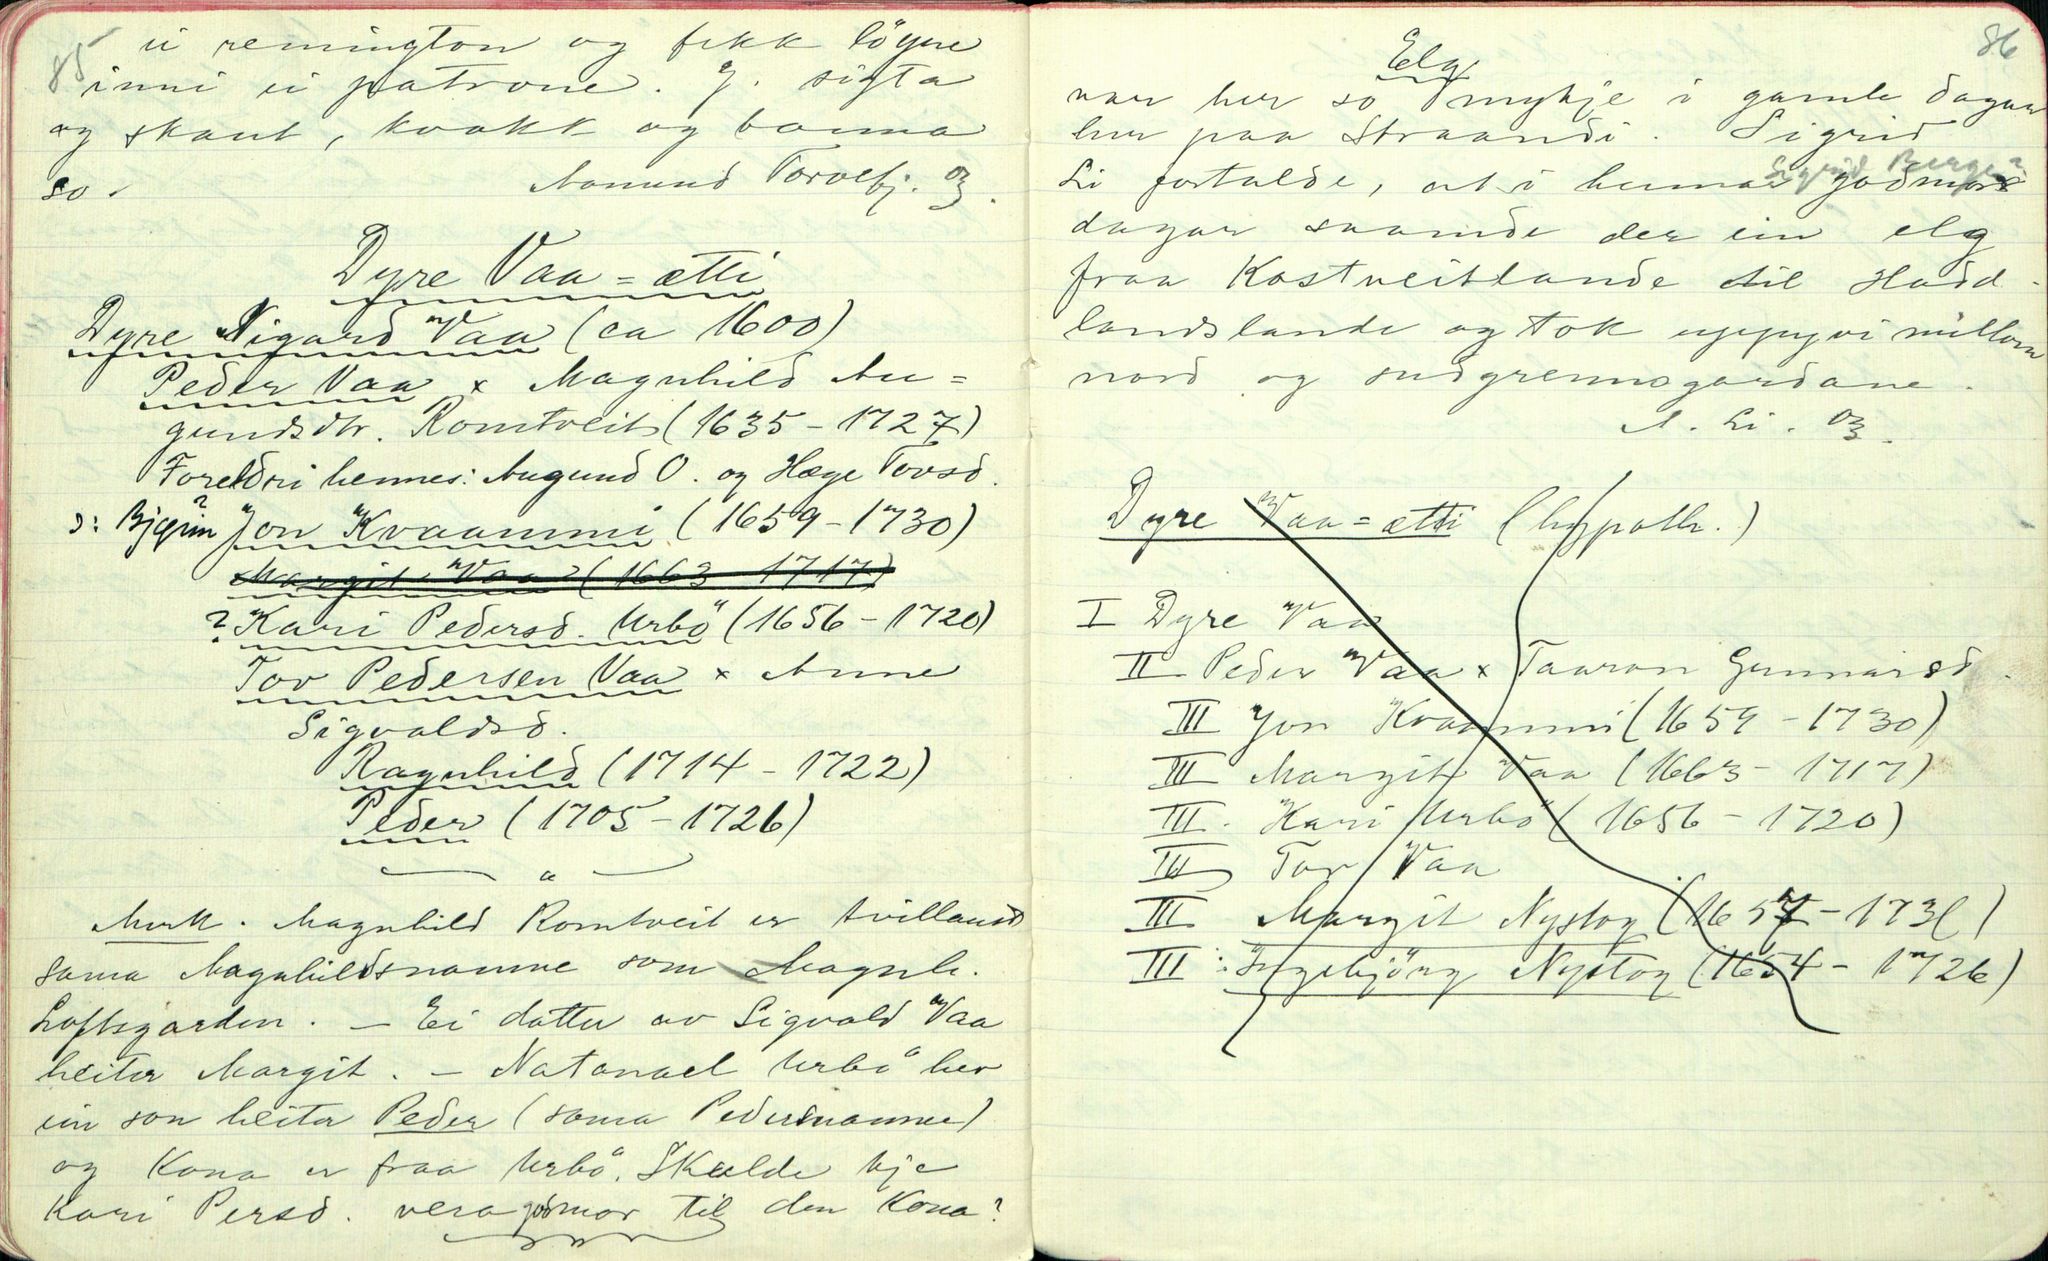 85
ei remington og fekk löyne
inni ei patrone. J. sigta
og skaut, kvakk og banna
so.
Aamund Torvetj. 03.
Dyre Vaa=ætti
Dyre Nigard Vaa (ca 1600)
Peder Vaa x Magnhild Au=
gundsdtr. Romtveit (1635-1727)
Foreldri hennes: Augund O. og Hæge Tovsd.
Jon Kvaammi (1659-1730)
Margit Vaa (1663-1717)
? Kari Pedersd. Urbö (1656-1720)
Tov Pedersen Vaa x Anne
Sigvaldsd.
Ragnhild (1714-1722)
Peder (1705-1726)
Merk. Magnhild Romtveit er tvillaust
sama Magnhildsnamne som Magnh.
Loftsgarden. - Ei dotter av Sigvald Vaa
heiter Margit. - Natanael Urbö hev
ein son heiter Peder (sama Pedersnamne)
og Kona er fraa Urbö. Skulde kje
Kari Persd. vera godmor til den Kona?
86
Elg
var her so mykje i gamle dagar
her paa Straandi. Sigrid
Sigrid Berge?
Li fortalde, at i hennar godmors
dagar saamde der ein elg
fraa Kostveitlande til Hadd-
landslande og tok uppyvi millom
nord og sudgrennsgardane.
A. Li. 03.
Dyre Vaa=ætti (hypoth.)
I Dyre Vaa
II Peder Vaa x Taaron Gunnarsd.
III Jon Kvaammi (1659-1730)
III Margit Vaa (1663-1717)
III. Kari Urbö (1656-1720)
III Tov Vaa
III Margit Nystog (1657-1731)
III Ingebjörg Nystog (1654-1726)